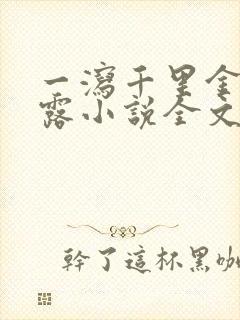 一瀉千里金
露小說全文
幹了這杯黑咖